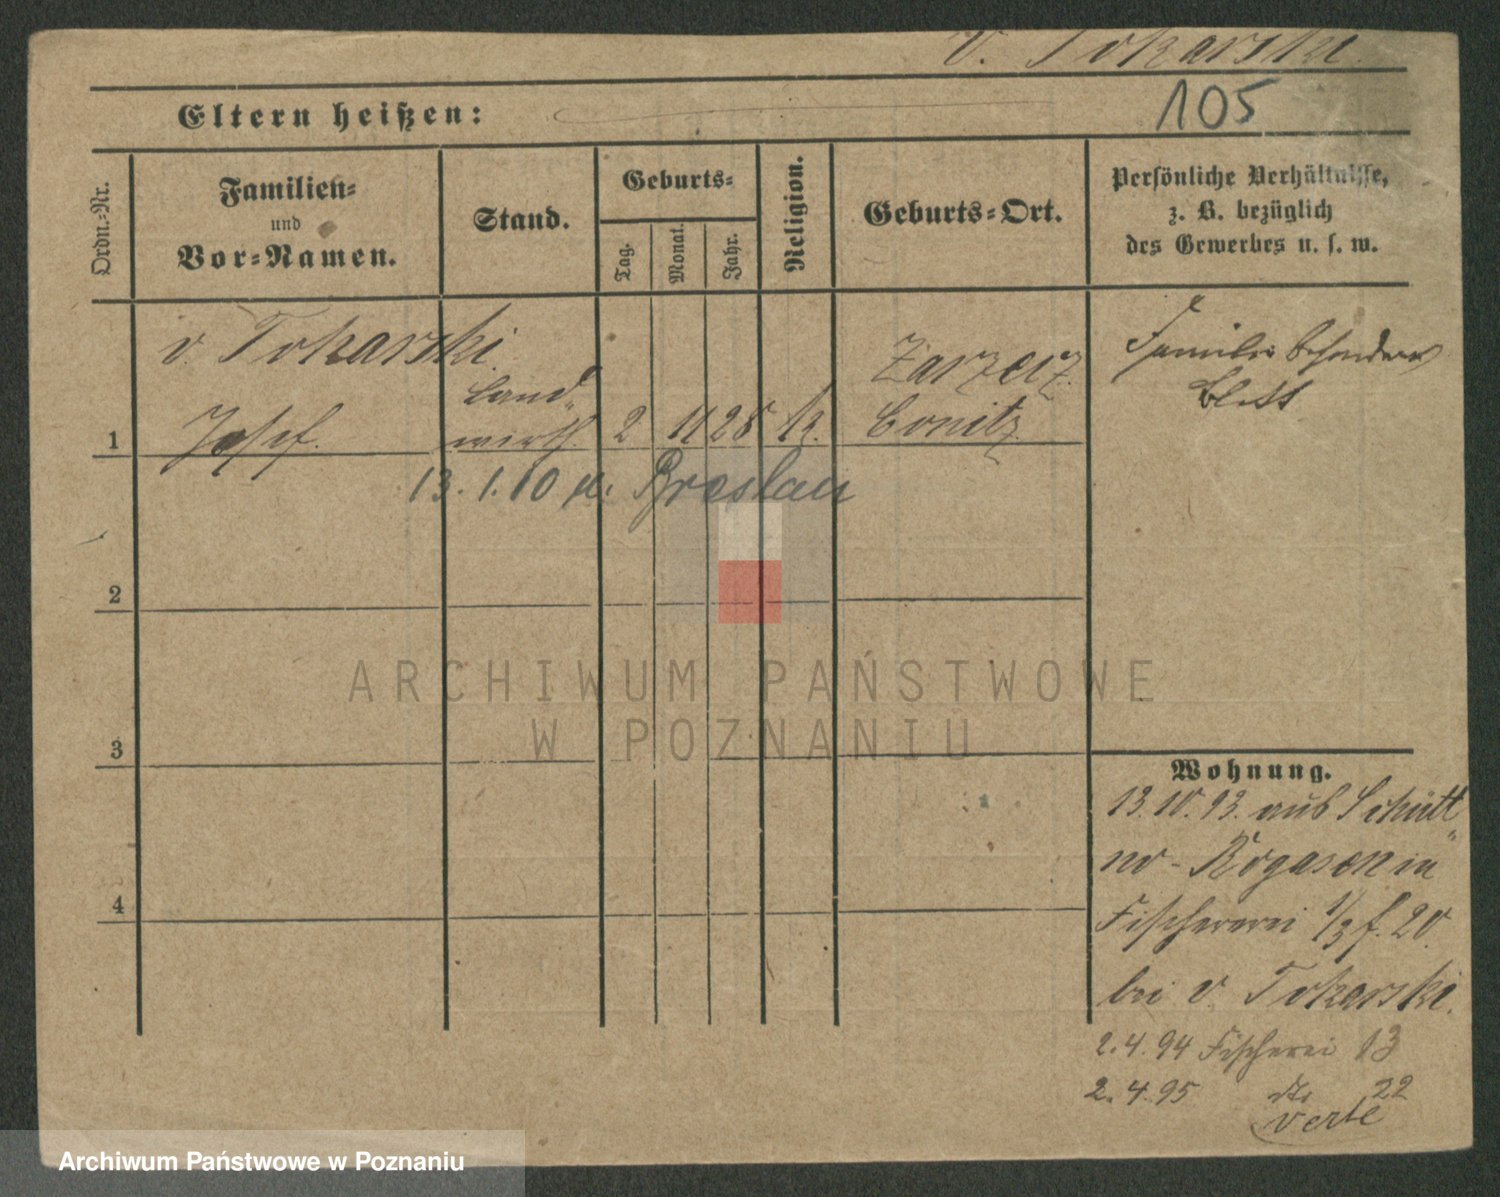 v. Tokarski.
105
Eltern heißen:
Ordn.-Nr.
Familien-
und
Vor-Namen.
Stand.
Geburts-
Tag.
Monat.
Jahr.
Religion.
Geburts-Ort.
Persönliche Verhältnisse,
z. B. bezüglich
des Gewerbes u. s. w.
1
v. Tokarski.
Josef.
Land-
wirth.
2
11
28
k.
Zarzecz.
Conitz
Familie besonders
13.1.00 Breslau
2
3
4
ARCHIWUM PAŃSTWOWE
W POZNANIU
Wohnung.
13.10.93. aus
Rogasen in
Fischerei 1/3 f. 20.
bei v. Tokarski.
2.4.94 Fischerei 13
2.4.95 do 22
verte
Archiwum Państwowe w Poznaniu